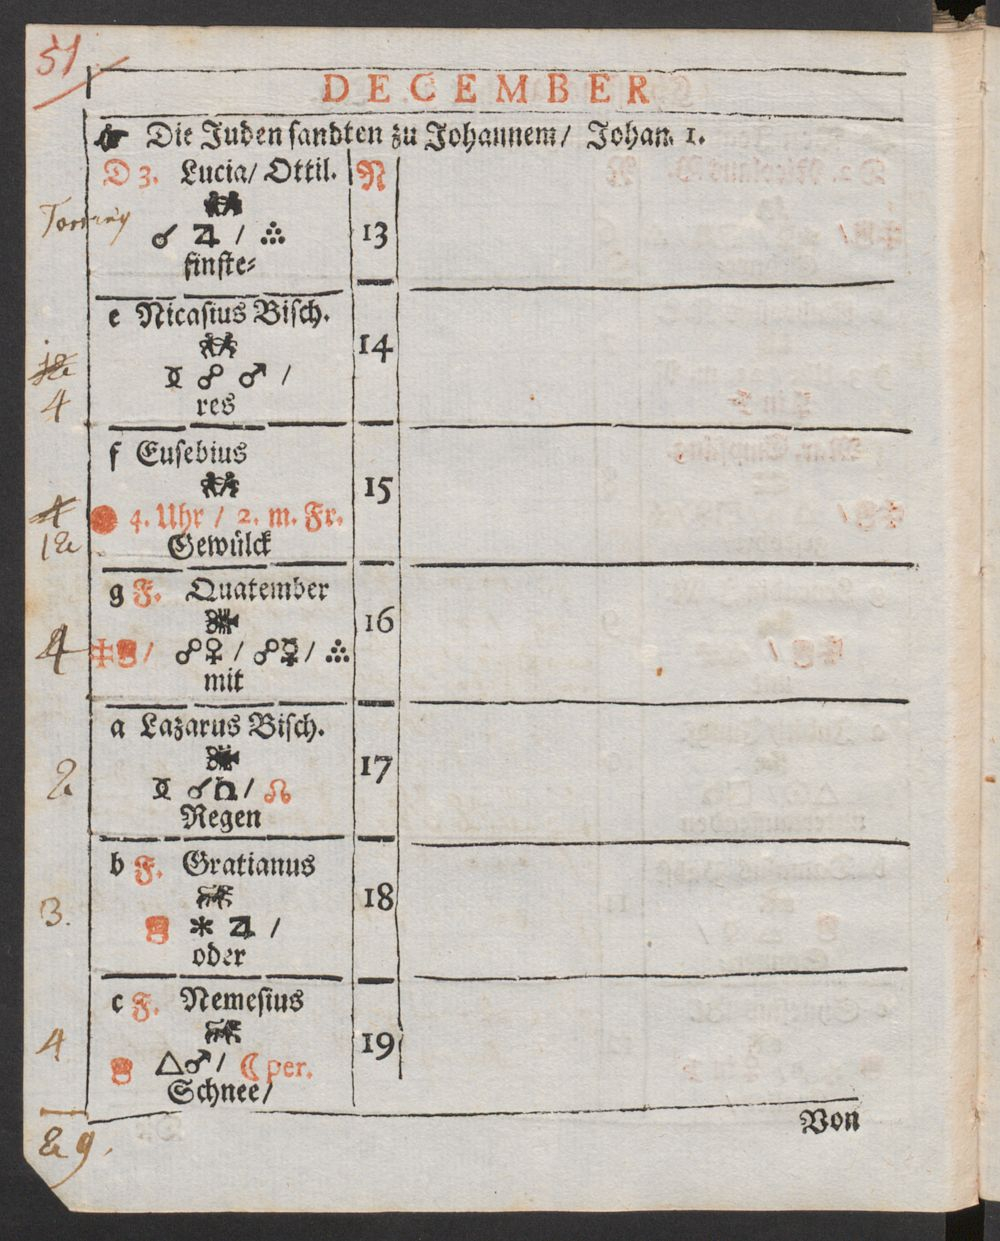 51
DECEMBER
☛ Die Juden ſandten zu Johannem/ Johan. 1.
D 3. Lucia/ Ottil. N
☌ ♃ / ஃ 13
finſte⸗
e Nicaſius Biſch.
14
☍ ♂ /
4
res
f Euſebius
15
4
● 4. Uhr / 2. m. Fr.
Gewülck
g F. Quatember
16
4
/ ☍♀ / ☍☿ / ஃ
mit
a Lazarus Biſch.
17
☌ / ☊
2
Regen
b F. Gratianus
18
3.
✱ ♃ /
oder
c F. Nemeſius
19
4
△♂ / ☾ per.
Schnee/
Von